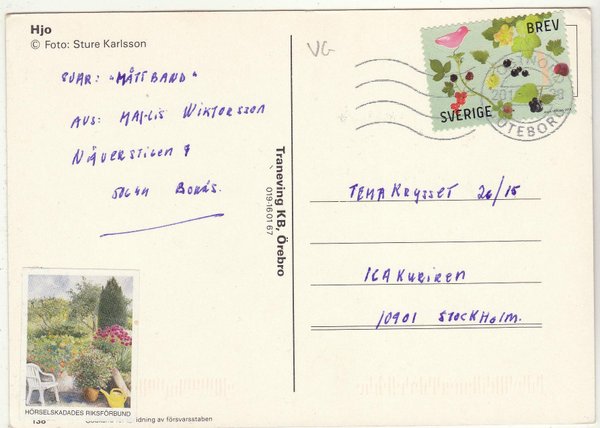 Hjo
© Foto: Sture Karlsson
VG
SVAR: "MÅTTBAND"
AVS: MAJ-LIS WIKTORSSON
NÄVERSTIGEN 7
50644 BORÅS
Traneving KB, Örebro
019-160167
BREV
SVERIGE
GÖTEBORG
TEMAKRYSSET 26/15
ICAKURIREN
10901 STOCKHOLM.
HÖRSELSKADADES RIKSFÖRBUND
138
av försvarsstaben